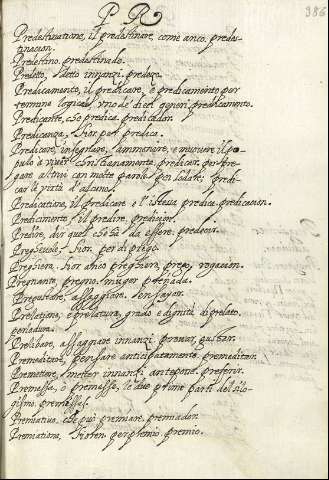 P R
386
Predestinatione, il predestinare, come anco, predes-
tinacion.
Predestino, predestinado.
Predetto, detto innanzi, predezo.
Predicamento, il predicare, è predicamento per
termine logical, uno de' dieci generi, predicamento.
Predicante, che predica, predicador.
Predicanza, per predica.
Predicare, insegnare, ammonire, e il po-
pulo à viver christianamente, predicar, per pre-
gare altrui con molte parole, per lodare, predi-
car la virtù d'alcuno.
Predicatione, il predicare e l'istessa predica, predicacion.
Predicimento, il predire, predicion.
Predire, dir quel che hà da essere, predecir.
Preghevole, per di prego.
Preghiera, antico preghiera, prego, rogacion.
Pregnante, pregno, muger preñada.
Pregustare, assaggiare, ensayar.
Prelatione, e prelatura, grado e dignità di prelato,
perladura.
Prelibare, assaggiare innanzi, provar, gustar.
Premeditare, pensare anticipatamente, premeditar.
Premettere, metter innanzi, anteponer, preferir.
Premessa, ò premesse, le due prime parti del silo-
gismo, premessas.
Premiativo, che può premiare, premiador.
Premiatione, per premio, premio.